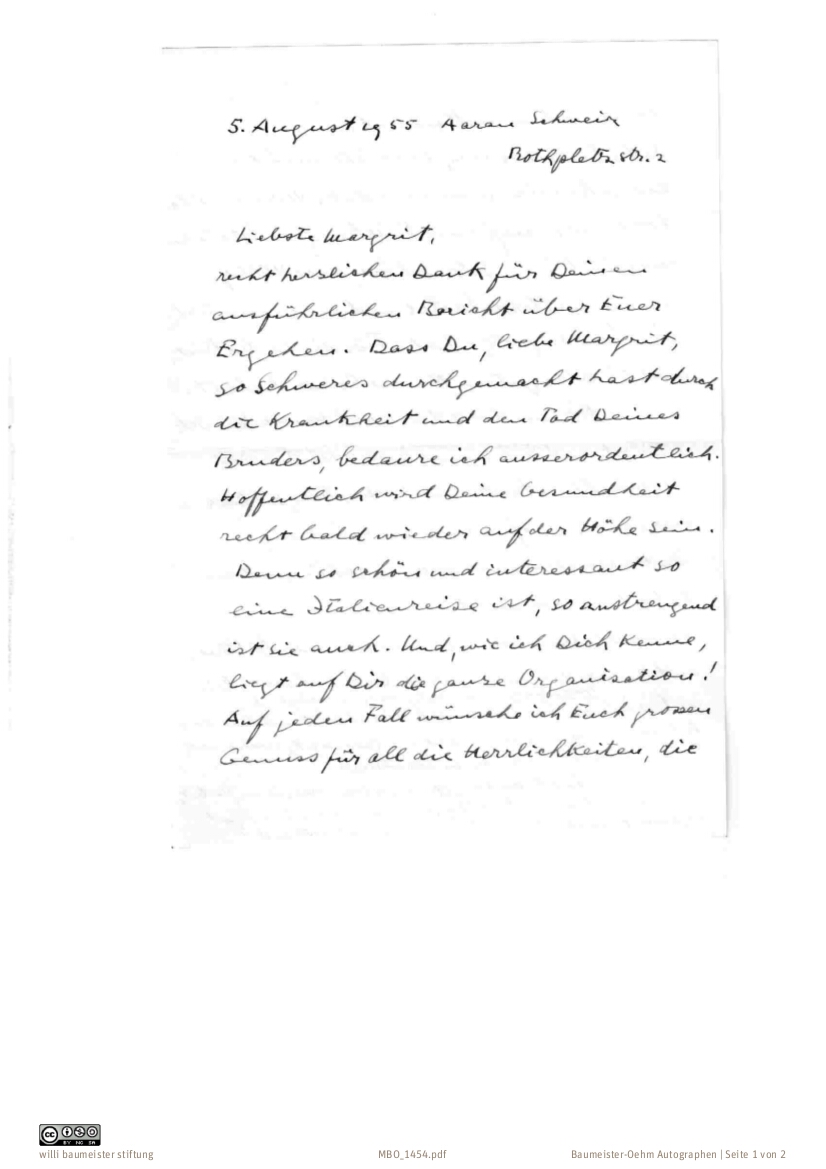 5. August 1955 Aarau Schweiz
Rothpletzstr. 2
Liebste Margrit,
recht herzlichen Dank für Deinen
ausführlichen Bericht über Euer
Ergehen. Dass Du, liebe Margrit,
so Schweres durchgemacht hast durch
die Krankheit und den Tod Deines
Bruders, bedaure ich ausserordentlich.
Hoffentlich wird Deine Gesundheit
recht bald wieder auf der Höhe sein.
Denn so schön und interessant so
eine Italienreise ist, so anstrengend
ist sie auch. Und, wie ich Dich kenne,
liegt auf Dir die ganze Organisation!
Auf jeden Fall wünsche ich Euch grossen
Genuss für all die Herrlichkeiten, die
cc BY NC SA
willi baumeister stiftung MBO_1454.pdf Baumeister-Oehm Autographen | Seite 1 von 2